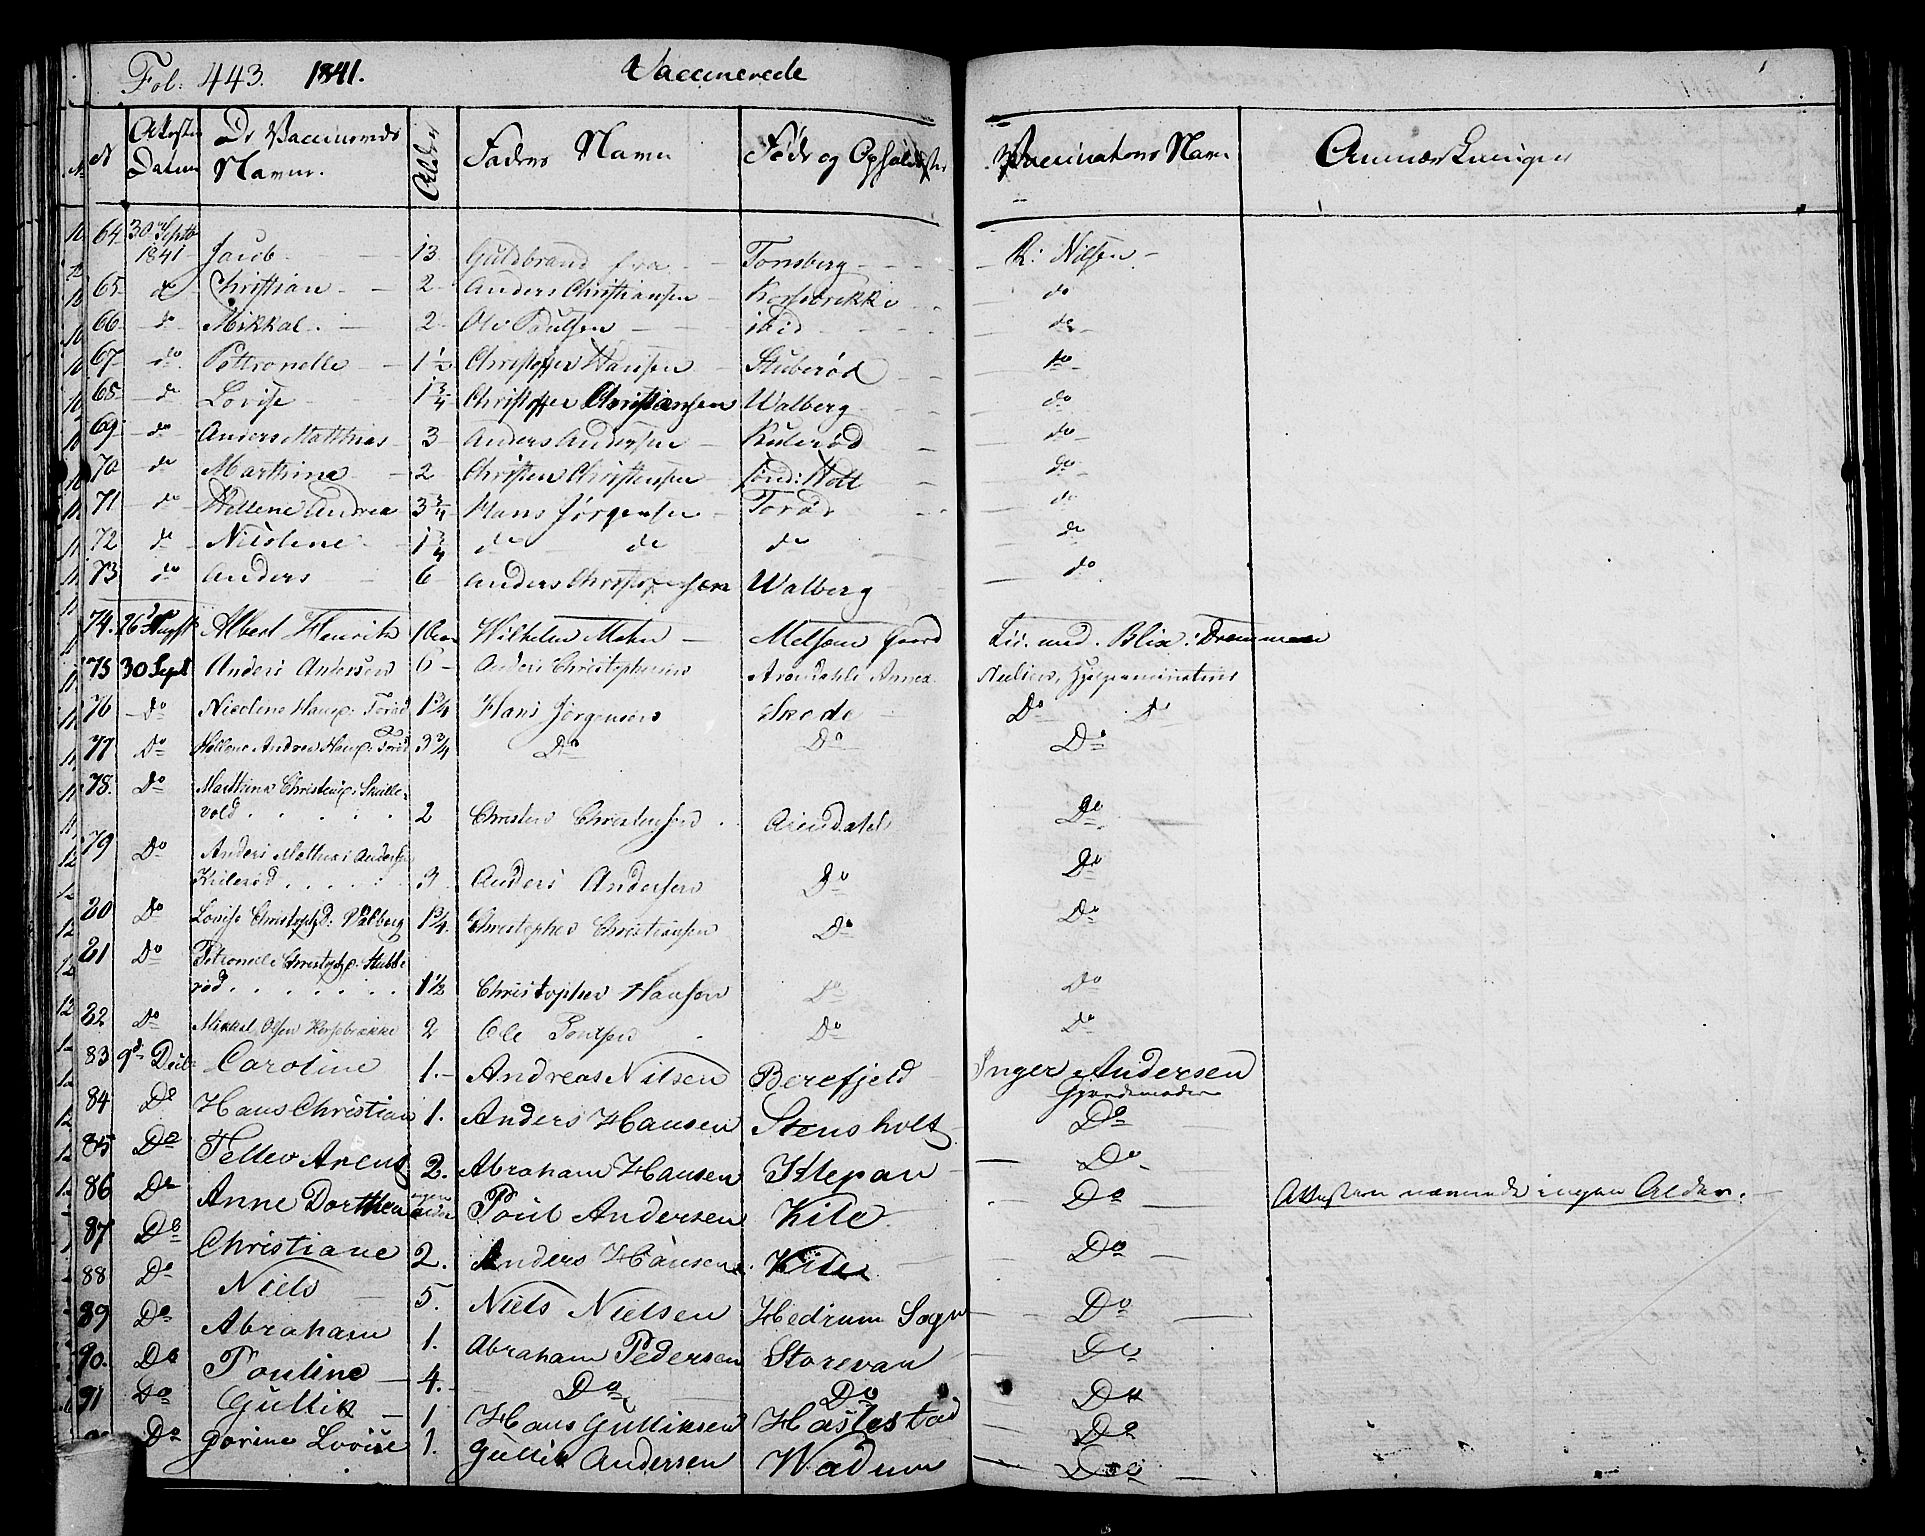 Fol: 443. 1841. Vaccinerede
N Attestens Datum De Vaccineredes Navne. Alder Fadrens Navn Føde og Opholds Vaccinatens Navn Anmærkninger
64 30 Septb 1841 Jacob 13 Guldbrand fra Tonsberg R: Nilsen
65 do Christian 2 Anders Christiansen do
66 do Mikkal 2 Ole Poulsen ibid do
67 do Pettronelle 1½ Christoffer Hansen Stuberød do
65 do Lovise 1¾ Christoffer Christiansen Walberg do
69 do Anders Matthias 3 Anders Andersen Kulerød do
70 do Marthine 2 Christen Christensen do
71 do Hellene Andrea 3¾ Hans Jørgensen Torød do
72 do Nicolene 1¾ do do do do
73 do Anders 6 Anders Christophersen Walberg do
74. 26 Augst Albert Henrik Wilhelm Mehn Melsom Gaard Lic. med. Blix: Drammen
75 30 Sept Anders Andersen 6 Anders Christophersen Arendahls Annex
76 Do Nicoline Hansd: Torød 1¾ Hans Jørgensen Skode Do Do
77 Do Hellene Andrea Hansd: Torød 3¾ Do Do Do
78. Do Marthina Christensd: Skille-
vold 2 Christen Christensen Arendahl Do
79 Do Anders Mathias Andersen
Kulerød 3 Anders Andersen Do Do
80 Do Lovise Christophd: Walberg 1¾ Christopher Christiansen Do Do
81 Do Petronelle Christophd: Stubbe
rød 1½ Christopher Hansen Do Do
82 Do Mikkel Olsen Korsebrække 2 Ole Poulsen Do Do
83 9d Decbr Caroline 1. Andreas Nilsen Berefjeld Inger Andersen
Gjordemoder
84 Do Hans Christian 1. Anders Hansen Stensholt Do
85 Do Tellev Arent 2. Abraham Hansen Klepan Do
86 Do Anne Dorthea ingen Alder Poul Andersen Kile Do Attesten nævnede ingen Alder.
87 Do Christiane 2. Anders Hansen Kile Do
88 Do Niels 5. Niels Nielsen Hedrum Sogn Do
89 Do Abraham 1. Abraham Pedersen Storevan Do
90. Do Pouline 4. Do Do Do
91 Do Gullik 1 Hans Gulliksen Haslestad Do
Do Gorine Lovise 1. Gullik Andersen Wadum Do